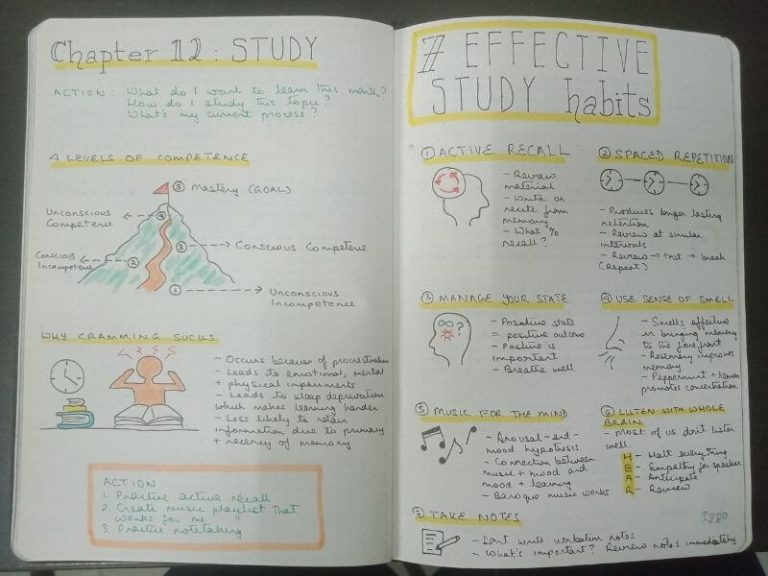 Chapter 12: STUDY
ACTION: What do I want to learn this month?
How do I study this topic?
What's my current process?
4 LEVELS OF COMPETENCE
⑤ Mastery (GOAL)
Unconscious
Competence
④
③ Conscious Competence
Conscious
Incompetence
②
① Unconscious
Incompetence
WHY CRAMMING SUCKS
- Occurs because of procrastination
- Leads to emotional, mental
+ physical impairments
- Leads to sleep deprivation
which makes learning harder
- Less likely to retain
information due to primacy
+ recency of memory
ACTION
1. Practice active recall
2. Create music playlist that
works for me
3. Practice notetaking
7 EFFECTIVE
STUDY habits
① ACTIVE RECALL
- Review
material
- Write or
recite from
memory
- What %
recall?
② SPACED REPETITION
- Produces longer lasting
retention
- Review at similar
intervals
- Review → test → break
(Repeat)
③ MANAGE YOUR STATE
?
- Positive state
= positive outcome
- Posture is
important
- Breathe well
④ USE SENSE OF SMELL
- Smells effective
in bringing memory
to the forefront
- Rosemary improves
memory
- Peppermint + lemon
promotes concentration
⑤ MUSIC FOR THE MIND
- Arousal-and-
mood hypothesis
- Connection between
music + mood and
mood + learning
- Baroque music works
⑥ LISTEN WITH WHOLE
BRAIN
- Most of us don't listen
well
H - Halt everything
E - Empathy for speaker
A - Anticipate
R - Review
⑦ TAKE NOTES
- Don't write verbatim notes
- What's important? Review notes immediately
Typo